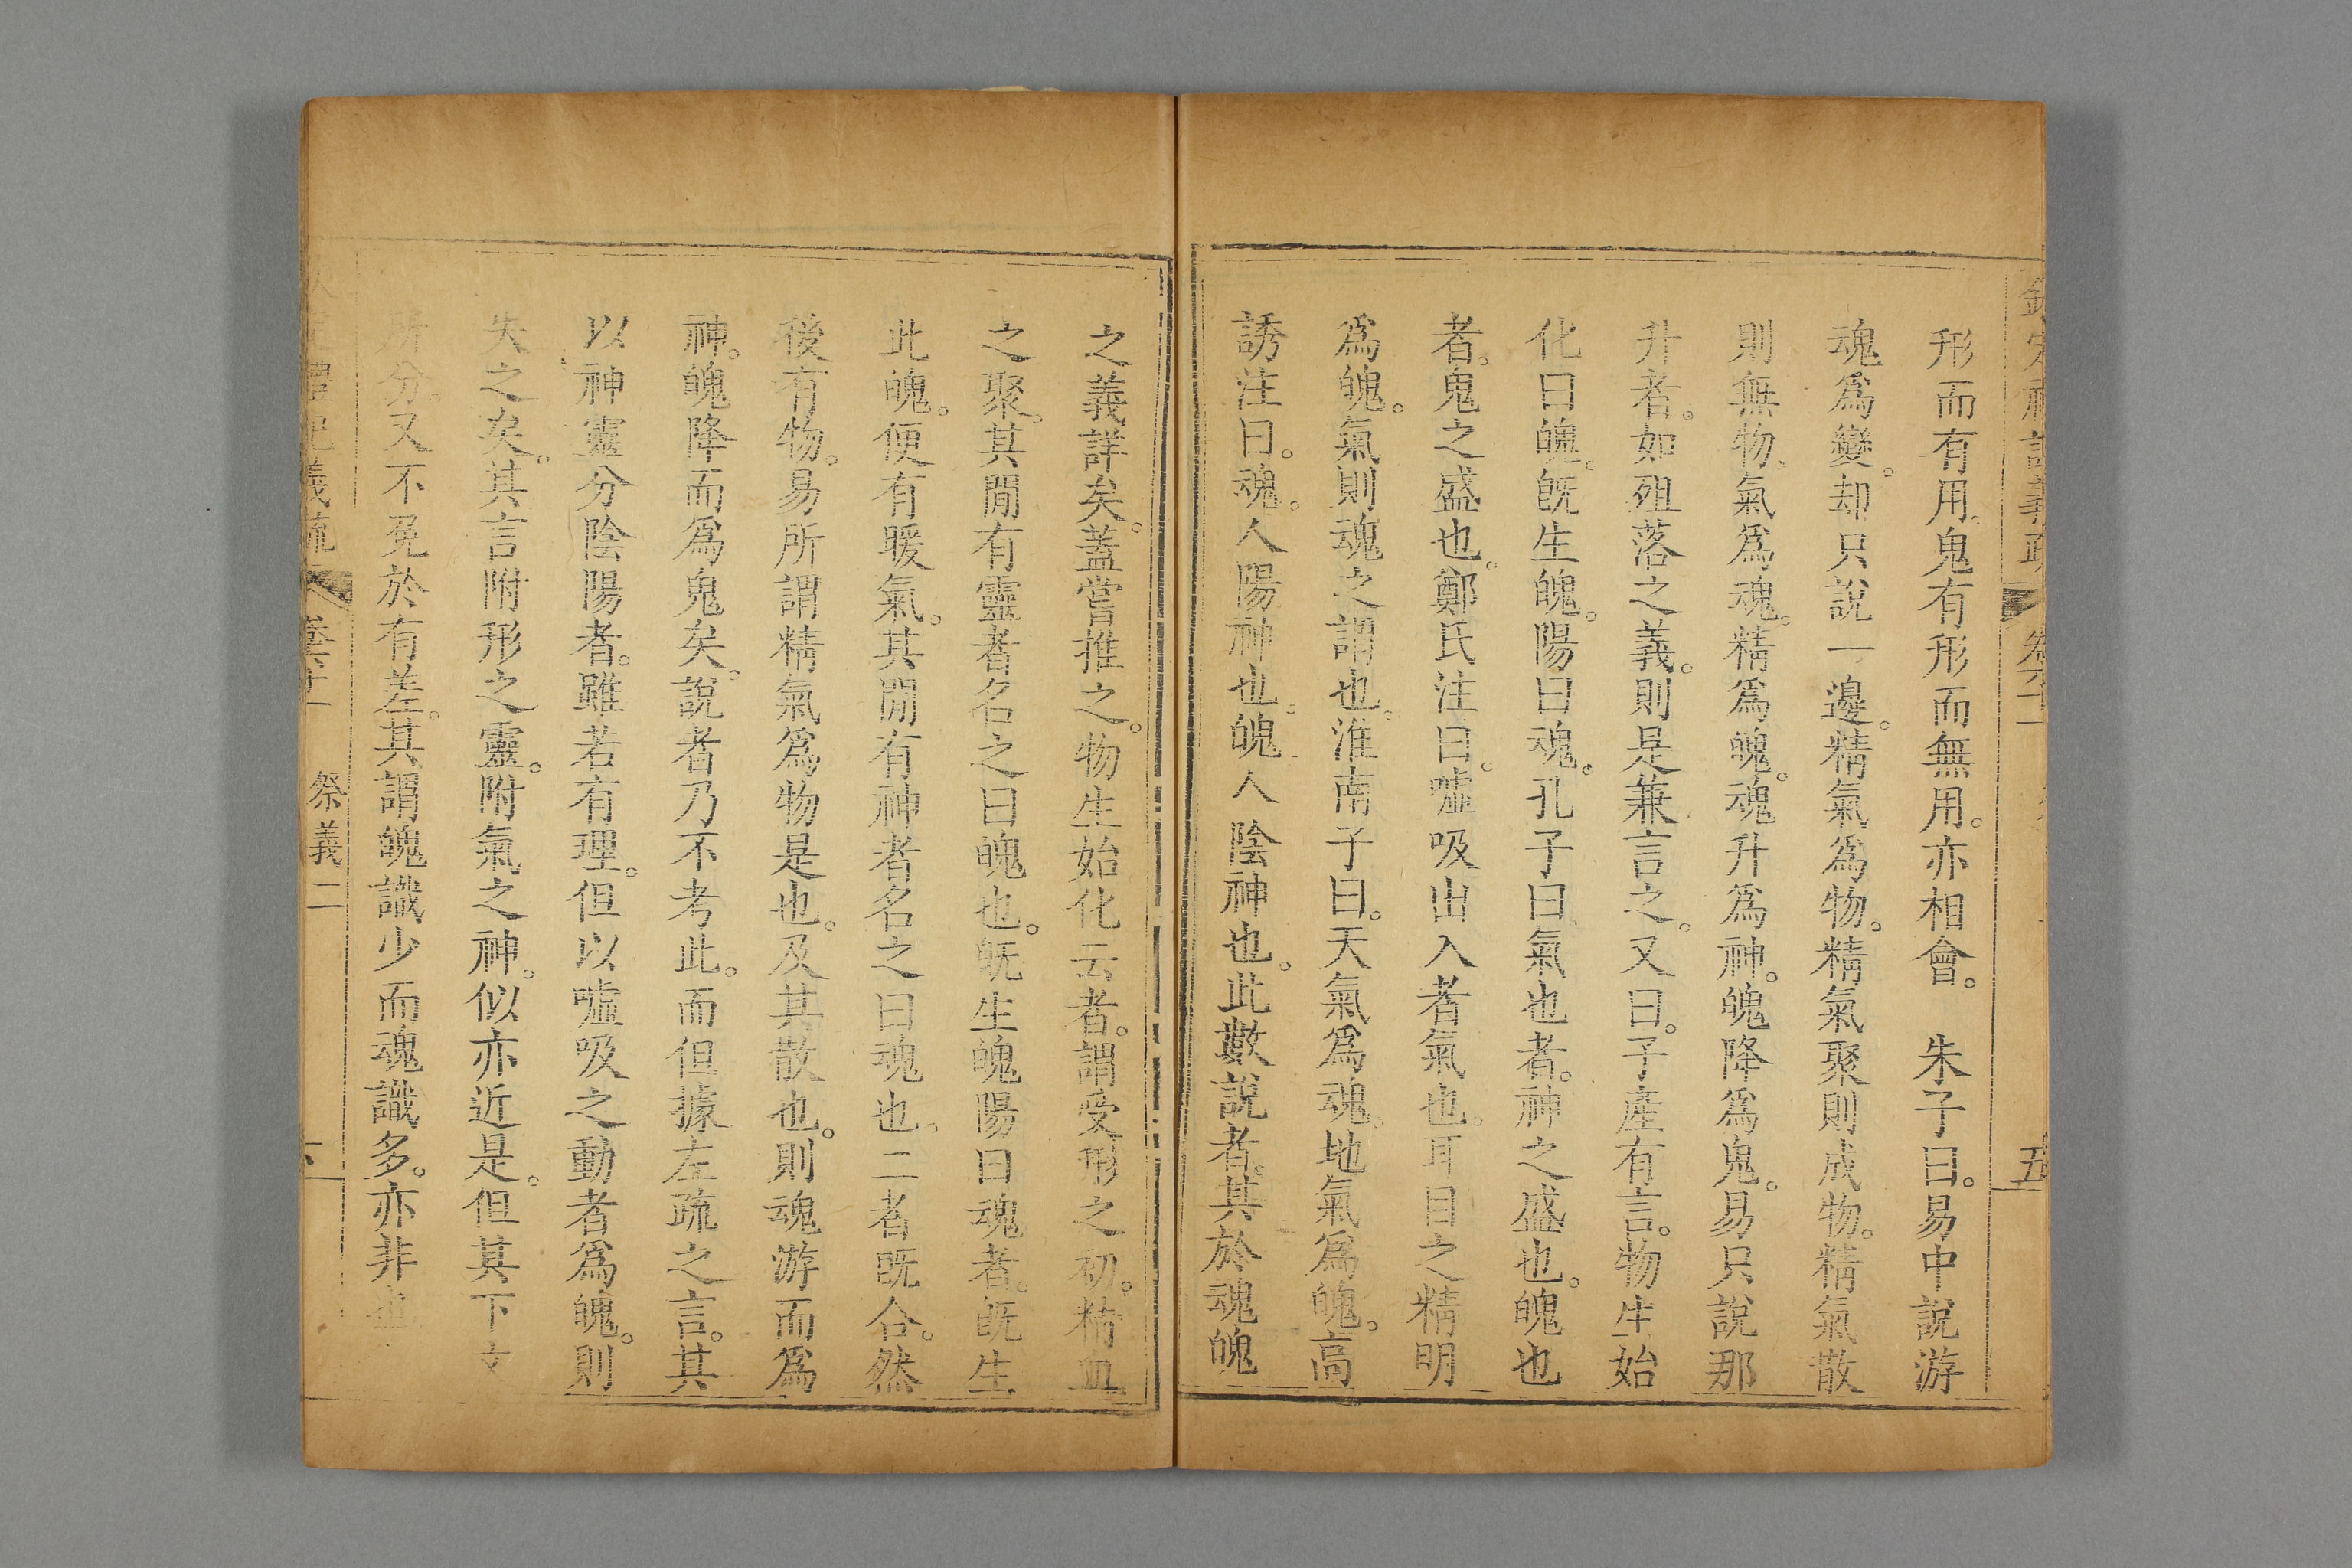 形而有用。鬼有形而無用。亦相會。　朱子曰。易中說游
魂爲變。却只說一邊。精氣爲物。精氣聚則成物。精氣散
則無物。氣爲魂。精爲魄。魂升爲神。魄降爲鬼。易只說那
升者。如殂落之義。則是兼言之。又曰。子產有言。物生始
化曰魄。旣生魄。陽曰魂。孔子曰氣也者。神之盛也。魄也
者。鬼之盛也。鄭氏注曰。噓吸出入者氣也。耳目之精明
爲魄。氣則魂之謂也。淮南子曰。天氣爲魂。地氣爲魄。高
誘注曰。魂。人陽神也。魄人陰神也。此數說者。其於魂魄
之義詳矣。蓋嘗推之。物生始化云者。謂受形之初。精血
之聚。其閒有靈者名之曰魄也。旣生魄陽曰魂者。旣生
此魄。便有暖氣。其閒有神者名之曰魂也。二者旣合。然
後有物。易所謂精氣爲物是也。及其散也。則魂游而爲
神。魄降而爲鬼矣。說者乃不考此。而但據左疏之言。其
以神靈分陰陽者。雖若有理。但以噓吸之動者爲魄。則
失之矣。其言附形之靈。附氣之神。似亦近是。但其下文
所分。又不免於有差。其謂魄識少而魂識多。亦非也
禮記義疏　祭義二